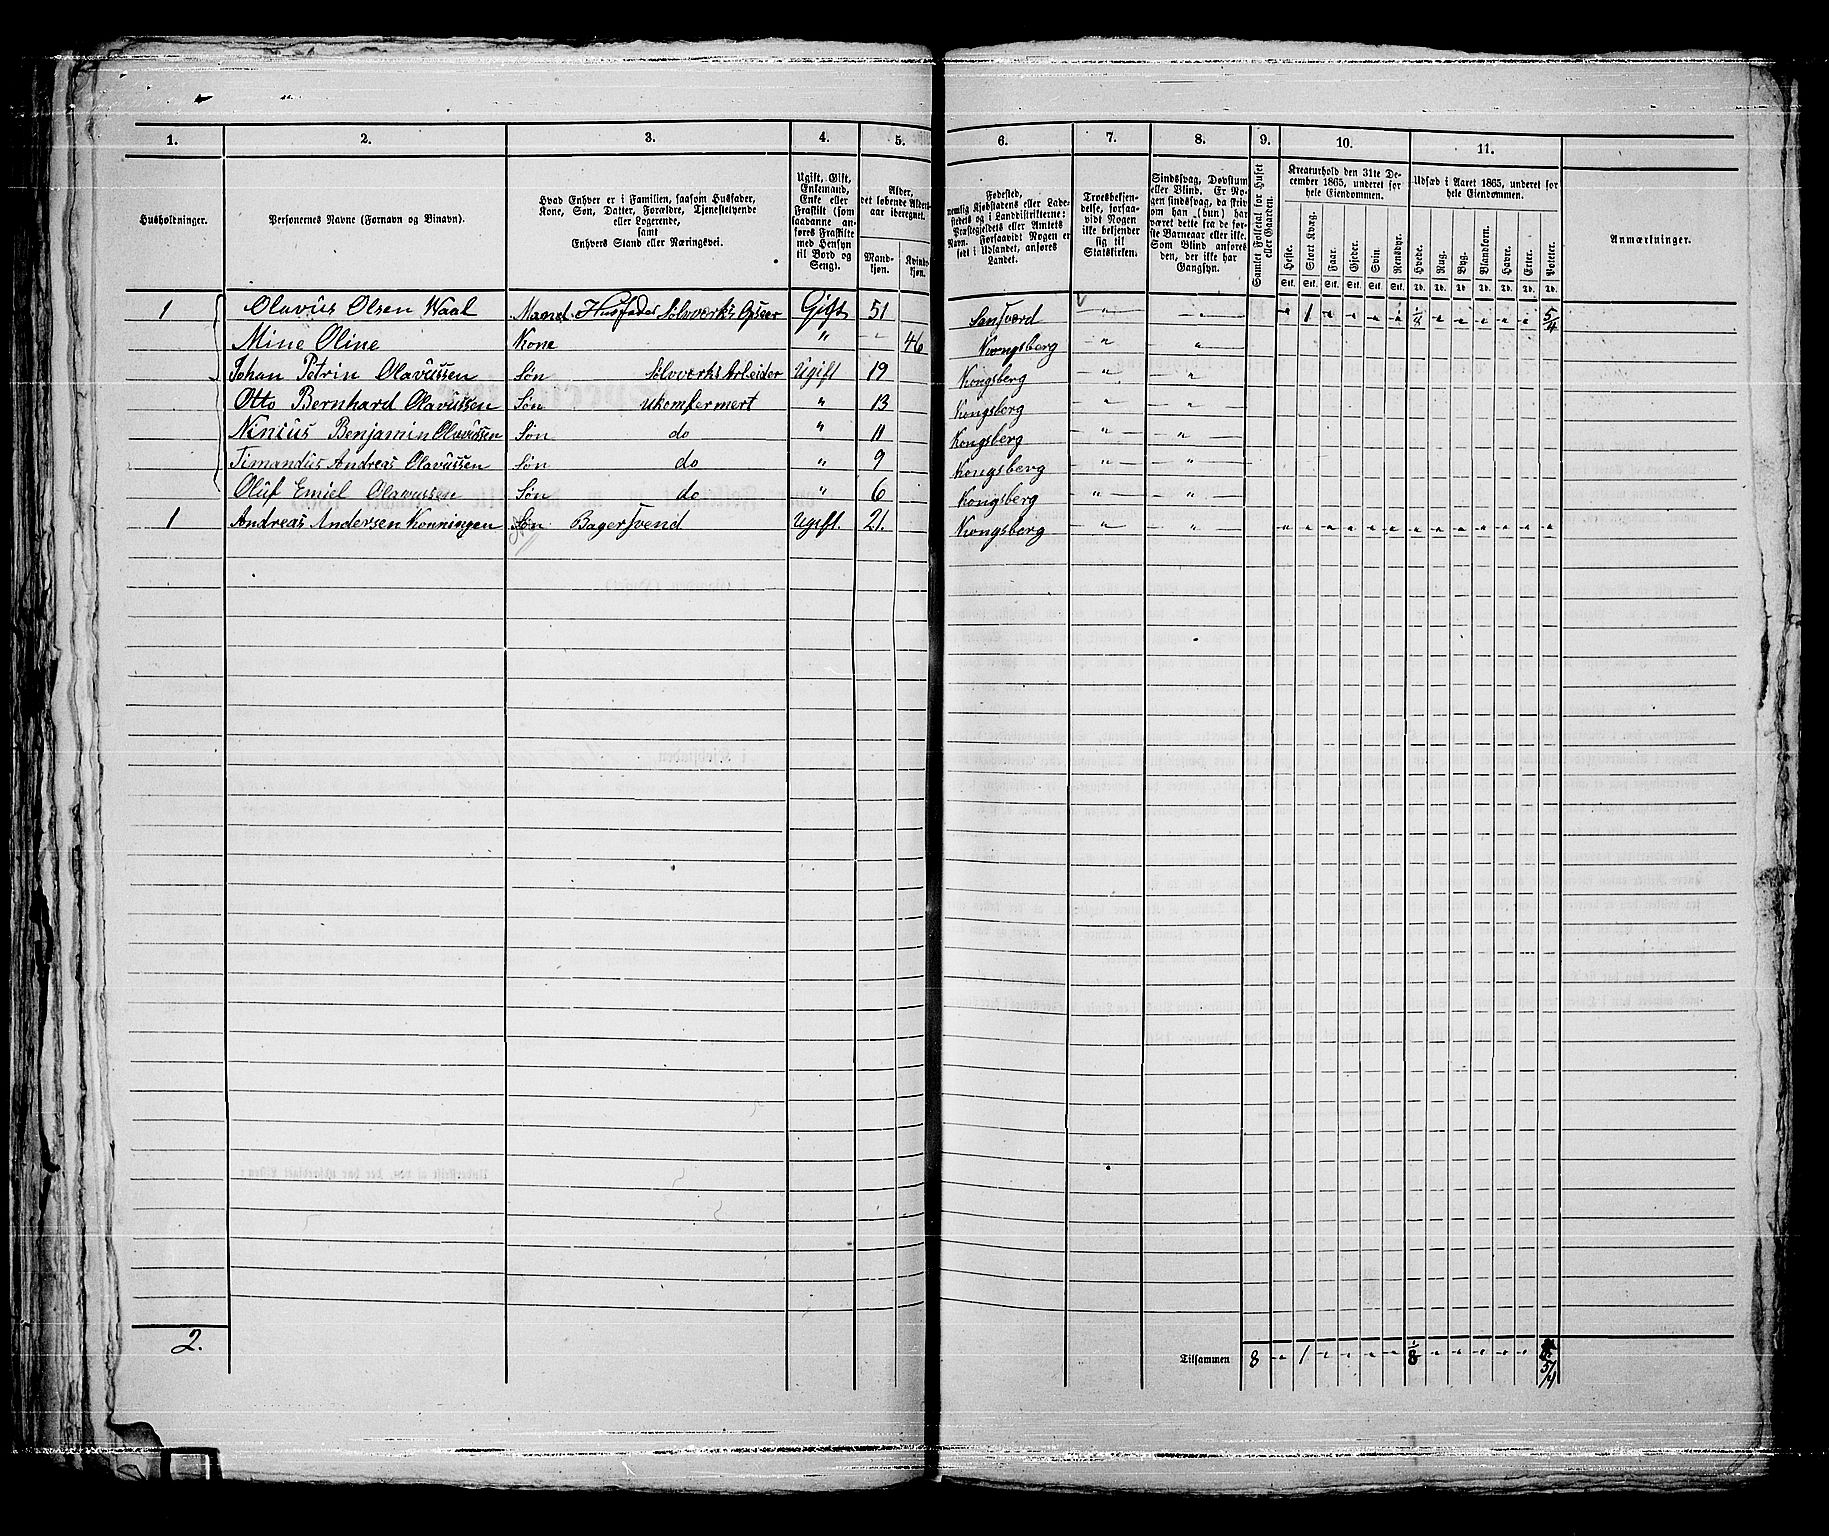 1. 2. 3. 4. 5. 6. 7. 8. 9. 10. 11.
Husholdninger.
Personernes Navne (Fornavn og Binavn).
Hvad Enhver er i Familien, saasom Husfader,
Kone, Søn, Datter, Forældre, Tjenestetyende
eller Logerende,
samt
Enhvers Stand eller Næringsvei.
Ugift, Gift,
Enkemand,
Enke eller
Fraskilt (som
saadanne an-
føres Fraskilte
med Hensyn
til Bord og
Seng).
Alder,
det løbende Alders-
aar iberegnet.
Mand-
kjøn.
Kvind-
kjøn.
Fødested,
nemlig Kjøbstadens eller Lade-
stedets og i Landdistrikterne:
Præstegjeldets eller Amtets
Navn. Forsaavidt Nogen er
født i Udlandet, anføres
Landet.
Troesbekjen-
delse, forsaa-
vidt Nogen
ikke bekjender
sig til
Statskirken.
Sindssvag, Døvstum
eller Blind. Er No-
gen sindssvag, da skriv
om han (hun) har
været dette fra de før-
ste Barneaar eller ikke.
Som Blind anføres
den, der ikke har
Gangsyn.
Samlet Folketal for Huset
eller Gaarden.
Kreaturhold den 31te De-
cember 1865, underet for
hele Eiendommen.
Heste. Stort Kvæg. Faar. Gjeder. Svin. Rensdyr.
Stk. Stk. Stk. Stk. Stk. Stk.
Udsæd i Aaret 1865, underet for
hele Eiendommen.
Hvede. Rug. Byg. Blandkorn. Havre. Erter. Poteter.
Td. Td. Td. Td. Td. Td. Td.
Anmærkninger.
1 Olavüs Olsen Waal Mand Husfader Sölvværks Opseer Gift 51 Sansværd " " " 1 " " " " 1/8 " " " " " 5/4
Mine Oline Kone " " 46 Kongsberg " "
Johan Petrin Olavüssen Søn Sölvværks Arbeider Ugift 19 Kongsberg " "
Otto Bernhard Olavüssen Søn Ukonfermert " 13 Kongsberg " "
Ninius Benjamin Olavüssen Søn do " 11 Kongsberg " "
Timandüs Andreas Olavüssen Søn do " 9 Kongsberg " "
Olüf Emiel Olavussen Søn do " 6 Kongsberg " "
1 Andreas Andersen Konningen Søn Bagersvend Ugift. 21. Kongsberg " " " " " " " " " " " " " " "
2. Tilsammen 8 " 1 " " " " 1/8 " " " " " 5/4